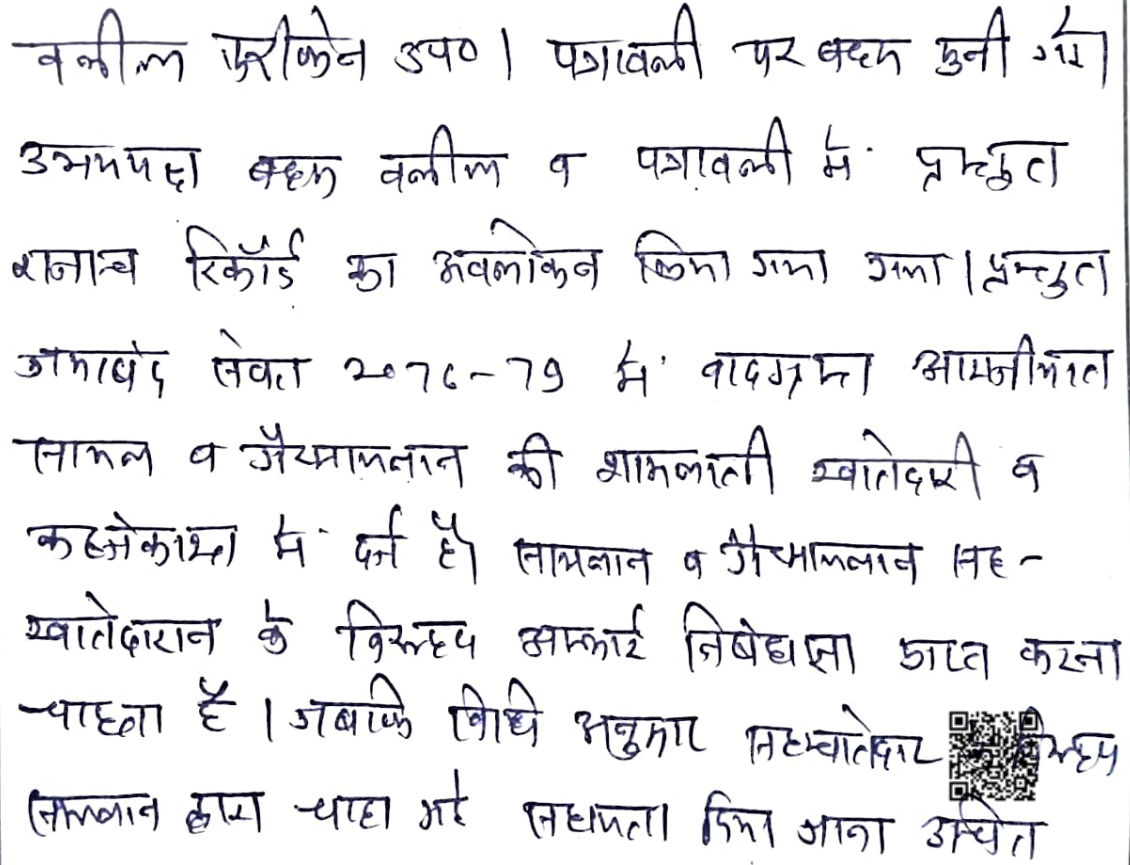 वकील फरीकेन उप०। पत्रावली पर बहस सुनी गई।
उभयपक्ष बहस वकील व पत्रावली में प्रस्तुत
राजस्व रिकॉर्ड का अवलोकन किया गया गया। प्रस्तुत
जमाबंद सेवत 2076-79 में वादग्रस्त आराजीयात
सायल व गैरसायलान की शामलाती खातेदारी व
कब्जेकाश्त में दर्ज है। सायलान व गैरसायलान सह-
खातेदारान के विरूद्ध अस्थाई निषेधाज्ञा प्राप्त करना
चाहता है। जबकि विधि अनुसार सहखातेदार विरूद्ध
सायलान द्वारा चाहा गई सहायता दिया जाना उचित